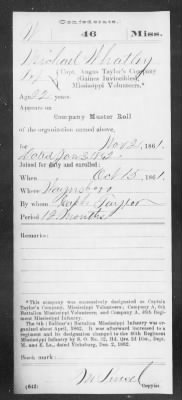 Confederate.
W 46 Miss.
Michael Whatley
Pvt, Capt. Angus Taylor's Company
(Gaines Invincibles),
Mississippi Volunteers.*
Age 22 years.
Appears on
Company Muster Roll
of the organization named above,
for Nov 21, 1861.
Joined for duty and enrolled:
When Oct 15, 1861.
Where
By whom Capt Taylor
Period 12 months
Remarks:
*This company was successively designated as Captain
Taylor's Company, Mississippi Volunteers; Company A, 6th
Battalion Mississippi Volunteers; and Company A, 46th Regi-
ment Mississippi Infantry.
The 6th (Balfour's) Battalion Mississippi Infantry was or-
ganized about April, 1862. It was afterward increased to a
regiment and its designation changed to the 46th Regiment
Mississippi Infantry by S. O. No. 12, Hd. Qrs. 2d Dist., Dept.
M. and E. La., dated Vicksburg, Dec. 2, 1862.
Book mark:
(642)
Copyist.